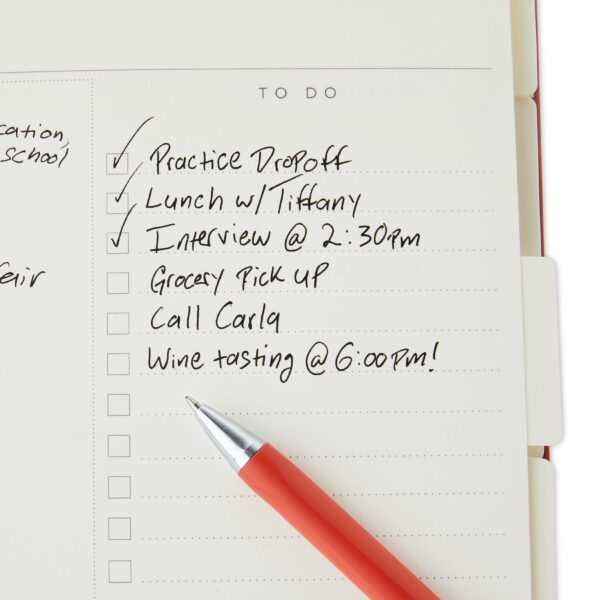 TO DO
cation,
school
Practice Dropoff
Lunch w/ Tiffany
Interview @ 2:30pm
fair
Grocery Pick up
Call Carla
Wine tasting @ 6:00pm!